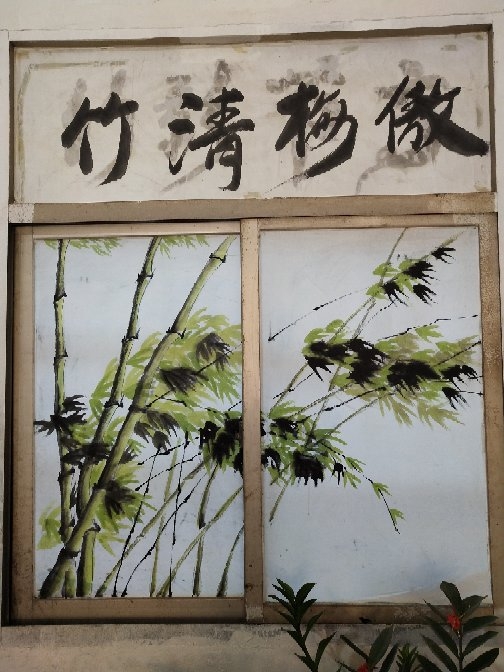 傲梅清竹